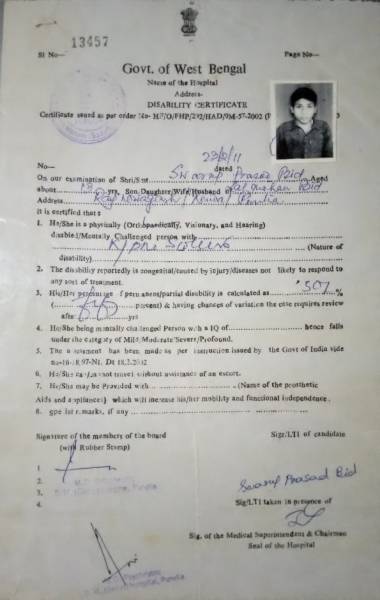 Sl No— 13457 Page No—
Govt. of West Bengal
Name of the Hospital
Address-
DISABILITY CERTIFICATE
Certificate issued as per order No- HF/O/FHP/292/HAD/9M-57-2002
No— dated 23/6/11
On our examination of Shri/Smt Swarup Prasad Bid Aged
about yrs, Son/Daughter/Wife/Husband of Bid
Address
It is certified that :
1. He/She is a physically (Orthopaedically, Visionary, and Hearing)
disabled/Mentally Challenged person with (Nature of
disability)
2. The disability reportedly is congenital/caused by injury/diseases not likely to respond to
any sort of treatment.
3. His/Her percentage of permanent/partial disability is calculated as 50% %
( percent) & having chances of variation the case requires review
after yrs
4. He/She being mentally challenged Person with a IQ of hence falls
under the category of Mild/Moderate/Severe/Profound.
5. The assessment has been made as per instruction issued by the Govt of India vide
no-16-18/97-NI. Dt 18.2.2002
6. He/She can/cannot travel without assistance of an escort.
7. He/She may be Provided with (Name of the prosthetic
Aids and appliances) which will increase his/her mobility and functional independence.
8. remarks, if any
Signature of the members of the board Sign/LTI of candidate
(with Rubber Stamp)
1
2
3
4
Swarup Prasad Bid
Sig/LTI taken in presence of
Sig. of the Medical Superintendent & Chairman
Seal of the Hospital